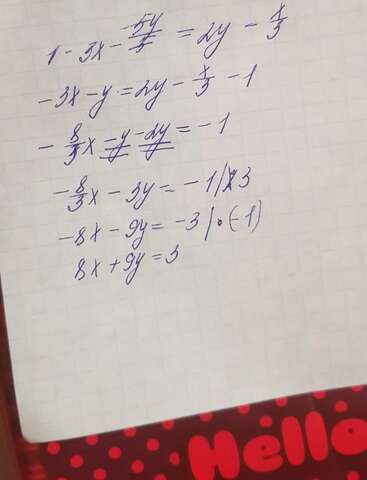 1 - 3x - -5y/5 = 2y - x/3
-3x - y = 2y - x/3 - 1
-8/3x - y - 2y = -1
-8/3x - 3y = -1 | 3
-8x - 9y = -3 | · (-1)
8x + 9y = 3
Hello